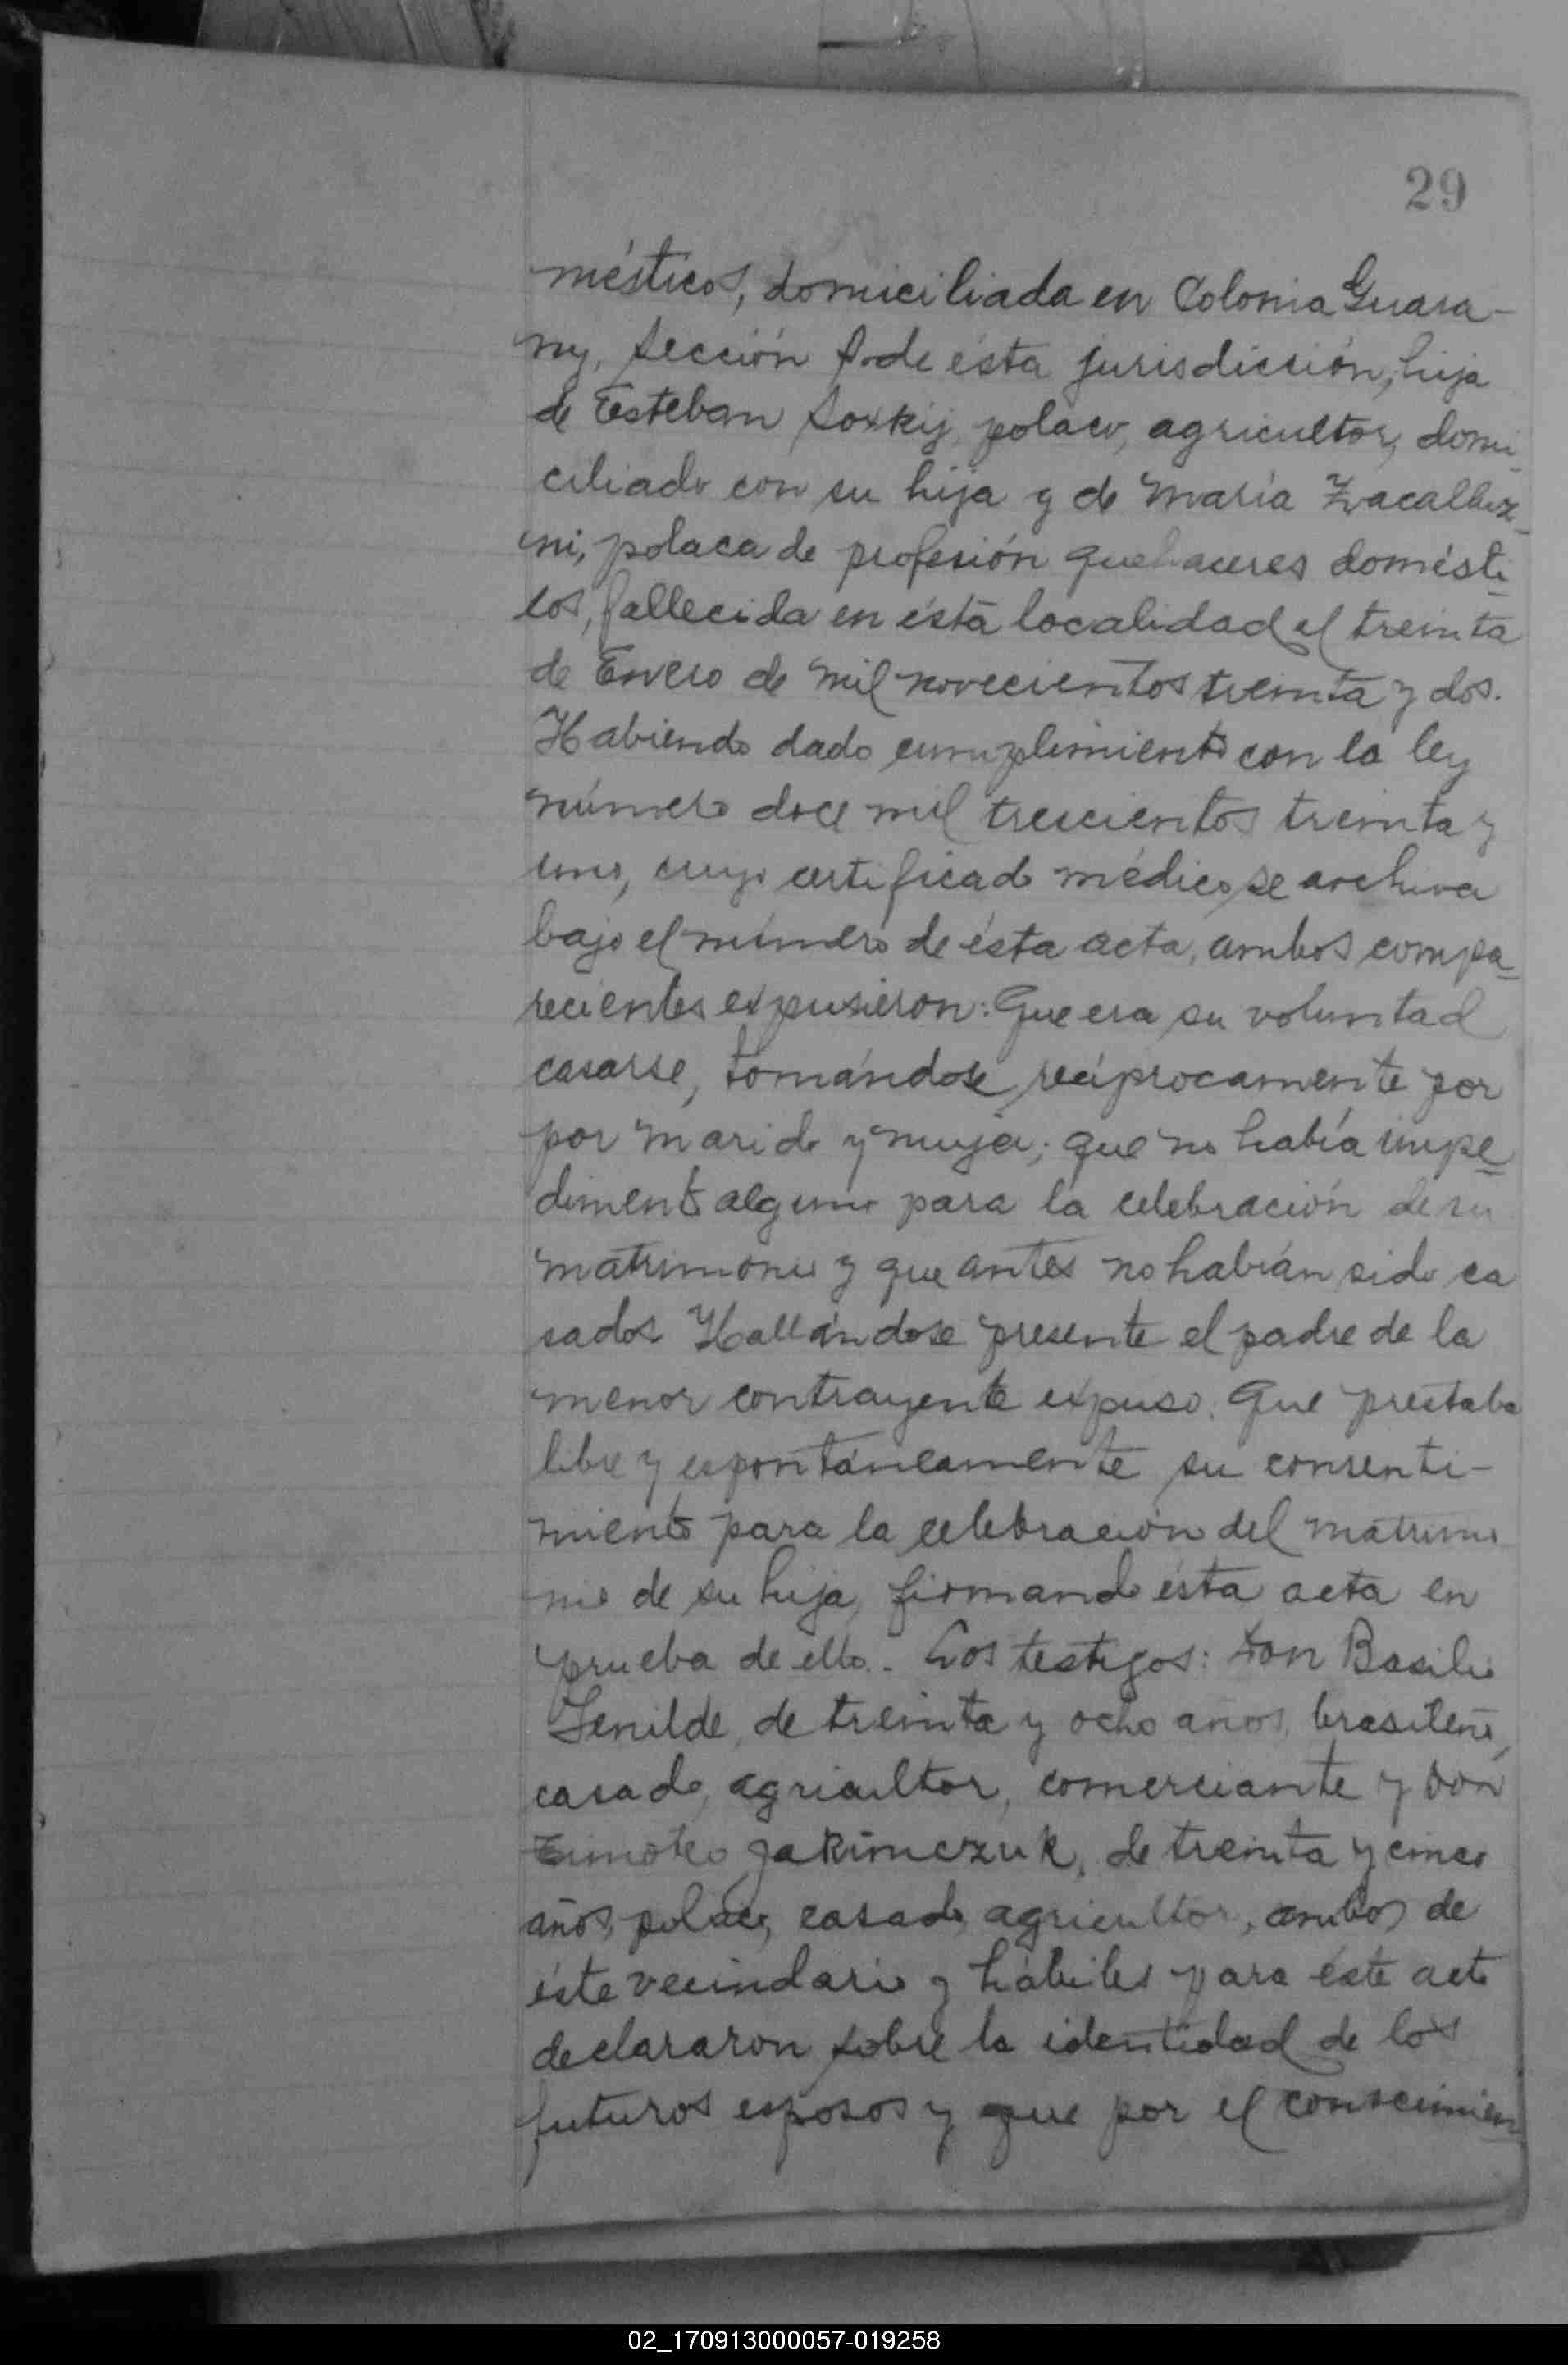 29
mésticos, domiciliada en Colonia Guara-
ny, sección de ésta jurisdicción, hija
de Esteban polaco, agricultor, domi-
ciliado con su hija y de María
ni, polaca de profesión quehaceres domésti-
cos, fallecida en ésta localidad el treinta
de Enero de mil novecientos treinta y dos.
Habiendo dado cumplimiento con la ley
número doce mil trescientos treinta y
uno, cuyo certificado médico se archiva
bajo el número de ésta acta, ambos compa=
recientes expusieron: Que era su voluntad
casarse, tomándose recíprocamente por
por marido y mujer; que no había impe=
dimento alguno para la celebración de su
matrimonio y que antes no habían sido ca
sados Hallándose presente el padre de la
menor contrayente expuso: Que prestaba
libre y espontáneamente su consenti-
miento para la celebración del matrimo
nio de su hija, firmando ésta acta en
prueba de ello.- Los testigos: Don Basilio
de treinta y ocho años, brasileño,
casado, agricultor, comerciante y Don
Timoteo Jakimczuk, de treinta y cinco
años, polaco, casado, agricultor, ambos de
éste vecindario y hábiles para éste acto
declararon sobre la identidad de los
futuros esposos y que por el conocimien
02_170913000057-019258